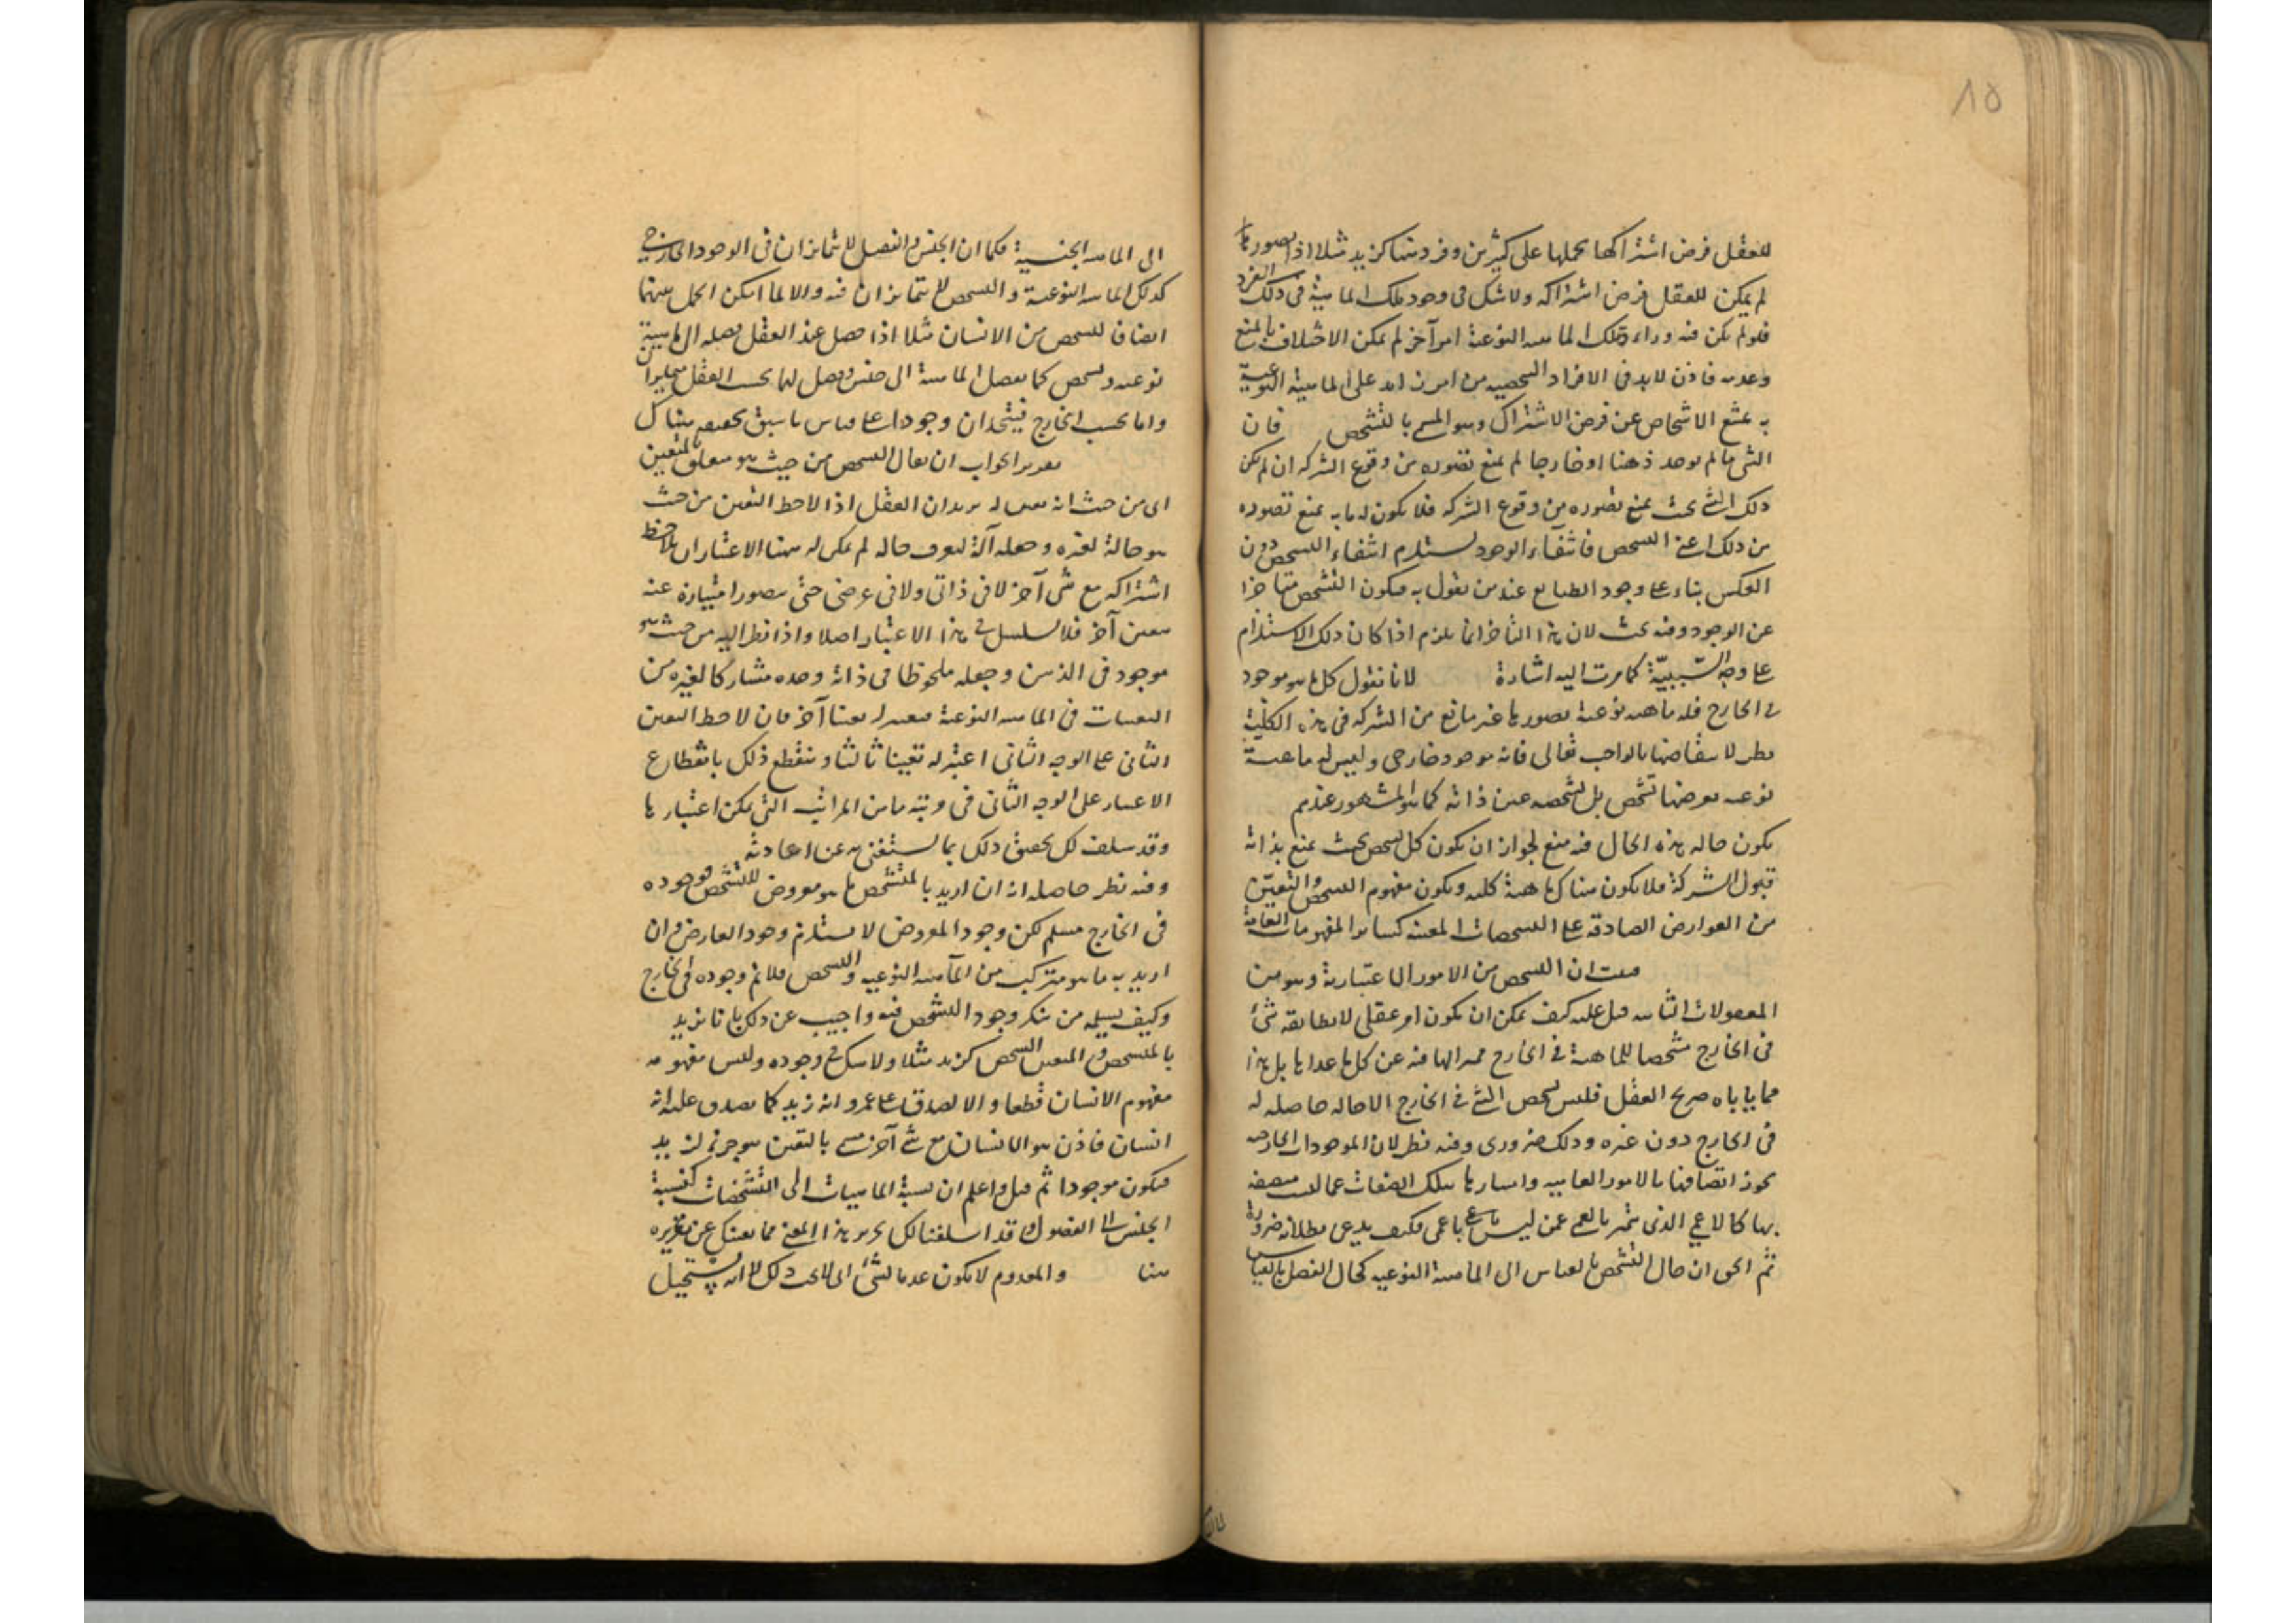 ٨٥
للعقل فرض اشتراكها بحملها على كثيرين وفرد منها كزيد مثلا اذا تصور بها
لم يمكن للعقل فرض اشتراكه ولا شك فى وجود تلك الماهية فى ذلك الفرد
فلو لم يكن فيه وراء تلك الماهية النوعية امر آخر لم يمكن الاختلاف بالمنع
وعدمه فاذن لابد فى الافراد الشخصية من امر زايد على الماهية النوعية
به يمتنع الاشخاص عن فرض الاشتراك وهو المسمى بالتشخص فان
الشى ما لم يوجد ذهنا او خارجا لم يمنع تصوره من وقوع الشركه ان لم يكن
ذلك الشى بحيث يمنع تصوره من وقوع الشركه فلا يكون له ما به يمنع تصوره
من ذلك اعنى التشخص فانتفاء الوجود يستلزم انتفاء التشخص دون
العكس بناء على وجود الطبايع عند من يقول به فيكون التشخص متاخرا
عن الوجود وفيه بحث لان هذا التاخر انما يلزم اذا كان ذلك الاستلزام
على وجه السّببيّة كما مرت اليه اشارة لانا نقول كل ما هو موجود
فى الخارج فله ماهية نوعية تصورها غير مانع من الشركه فى هذه الكليّة
نظر لانتقاضها بالواجب تعالى فانه موجود خارجى وليس له ماهية
نوعية يعرضها تشخص بل تشخصه عين ذاته كما هو المشهور عندهم
يكون حاله هذه الحال فيه منع لجواز ان يكون كل تشخص بحيث يمنع بذاته
قبول الشركة فلا يكون هناك ماهية كلية ويكون مفهوم التشخص والتعيّن
من العوارض الصادقة على التشخصات المعينة كسائر المفهومات العامة
ان التشخص من الامور الاعتبارية وهو من
المعقولات الثانية قيل عليه كيف يمكن ان يكون امر عقلى لا يطابقه شئ
فى الخارج مشخصا للماهية فى الخارج مميزا لها فيه عن كل ما عداها بل هذا
مما ياباه صريح العقل فليس تشخص الشئ فى الخارج الا حاله حاصله له
فى الخارج دون غيره وذلك ضرورى وفيه نظر لان الموجودات الخارجية
يجوز اتصافها بالامور العدمية وامتيازها بتلك الصفات عما ليست متصفة
بها كالاعمى الذى يتميز بالعمى عمن ليس باعمى فكيف يدعى بطلانه ضرورة
ثم الحق ان حال التشخص بالقياس الى الماهية النوعية كحال الفصل بالقياس
الى الماهية الجنسية فكما ان الجنس والفصل لا يتمايزان فى الوجود الخارجى
كذلك الماهية النوعية والتشخص لا يتمايزان فيه والا لما امكن الحمل بينهما
ايضا فالشخص من الانسان مثلا اذا حصل عند العقل فصله الى ماهية
نوعية وتشخص كما يفصل الماهية الى جنس وفصل لهما بحسب العقل
واما بحسب الخارج فيتحدان وجودا على قياس ما سبق تحقيقه هناك
تقرير الجواب ان يقال التشخص من حيث هو متعلق بالمتعين
اى من حيث انه تعين له يريد ان العقل اذا لاحظ التعين من حيث
هو حالة لغيره وجعله آلة لتعرف حاله لم يمكن له بهذا الاعتبار ان يلاحظ
اشتراكه مع شى آخر لا فى ذاتى ولا فى عرضى حتى يتصور امتيازه عنه
بتعين آخر فلا تسلسل فى هذا الاعتبار اصلا واذا نظر اليه من حيث هو
موجود فى الذهن وجعله ملحوظا فى ذاته وحده مشاركا لغيره من
التعينات فى الماهية النوعية فيعتبر له تعينا آخر فان لاحظ التعين
الثانى على الوجه الثانى اعتبر له تعينا ثالثا وينقطع ذلك بانقطاع
الاعتبار على الوجه الثانى فى مرتبة ما من المراتب التى يمكن اعتبارها
وقد سلف لك تحقيق ذلك بما يستغنى به عن اعادته
وفيه نظر حاصله انه ان اريد بالمتشخص ما هو معروض للتشخص فوجوده
فى الخارج مسلم لكن وجود المعروض لا يستلزم وجود العارض وان
اريد به ما هو مركب من الماهية النوعية والتشخص فلا نم وجوده فى الخارج
وكيف يسلمه من ينكر وجود التشخص فيه واجيب عن ذلك بانا نريد
بالمتشخص والمتعين الشخص كزيد مثلا ولا شك فى وجوده وليس مفهومه
مفهوم الانسان قطعا والا لصدق على عمرو انه زيد كما يصدق عليه انه
انسان فاذن هو الانسان مع شئ آخر يسمى بالتعين هو جزء لزيد
فيكون موجودا ثم قيل واعلم ان نسبة الماهيات الى التشخصات كنسبة
الجنس الى الفصول وقد اسلفنا لك تحرير هذا المعنى مما يغنيك عن تقريره
هنا والمعدوم لا يكون عدما لشئ اى لا يحدث ذلك لانه يستحيل